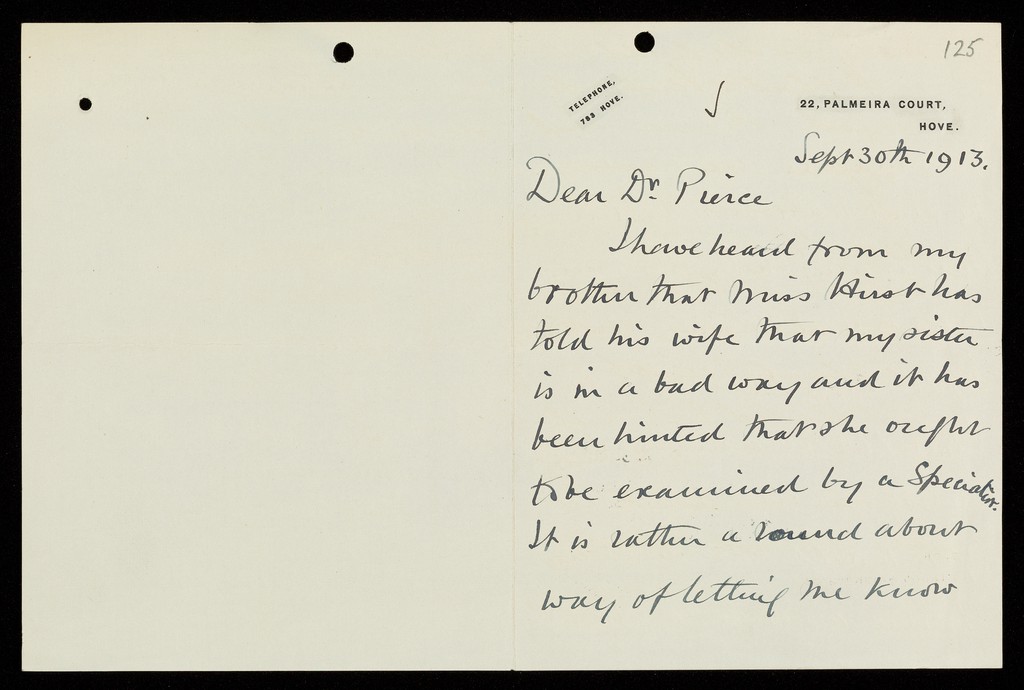 125
TELEPHONE,
783 HOVE.
22, PALMEIRA COURT,
HOVE.
Sept 30th 1913.
Dear Dr. Pierce
I have heard from my
brother that Miss Hirst has
told his wife that my sister
is in a bad way and it has
been hinted that she ought
to be examined by a Specialist.
It is rather a round about
way of letting me know